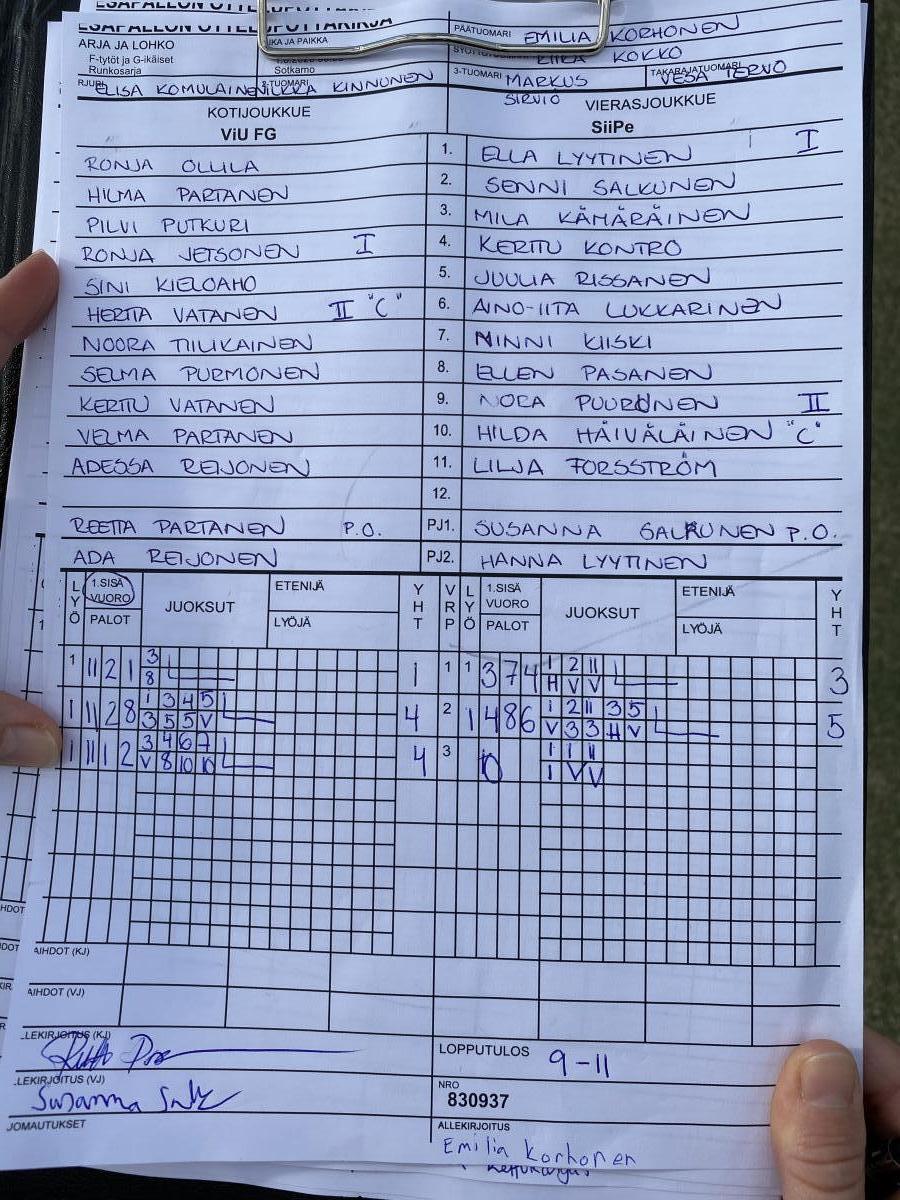 ESAPALLON OTTELUPÖYTÄKIRJA
ARJA JA LOHKO
F-tytöt ja G-ikäiset
Runkosarja
IKA JA PAIKKA
Sotkamo
PÄÄTUOMARI EMILIA KORHONEN
KOKKO
RJURI ELISA KOMULAINEN
2-TUOMARI KINNUNEN
3-TUOMARI MARKUS SIRVIÖ
TAKARAJATUOMARI VESA TERVO
KOTIJOUKKUE
ViU FG
VIERASJOUKKUE
SiiPe
RONJA OLLILA 1. ELLA LYYTINEN I
HILMA PARTANEN 2. SENNI SALKUNEN
PILVI PUTKURI 3. MILA KÄMÄRÄINEN
RONJA JETSONEN I 4. KERTTU KONTRO
SINI KIELOAHO 5. JUULIA RISSANEN
HERTTA VATANEN II "C" 6. AINO-IITA LUKKARINEN
NOORA TIILIKAINEN 7. NINNI KIISKI
SELMA PURMONEN 8. ELLEN PASANEN
KERTTU VATANEN 9. NORA PUURUNEN II
VELMA PARTANEN 10. HILDA HÄIVÄLÄINEN "C"
ADESSA REIJONEN 11. LILJA FORSSTRÖM
12.
REETTA PARTANEN P.O. PJ1. SUSANNA SALKUNEN P.O.
ADA REIJONEN PJ2. HANNA LYYTINEN
LYÖ 1.SISÄ VUORO PALOT JUOKSUT ETENIJÄ LYÖJÄ YHT VRP LYÖ 1.SISÄ VUORO PALOT JUOKSUT ETENIJÄ LYÖJÄ YHT
1 11 2 1 3 1 1 1 3 7 4 1 2 11 3
8 H V V
1 11 2 8 1 3 4 5 4 2 1 4 8 6 1 2 11 3 5 5
3 5 5 V V 3 3 H V
1 11 1 2 3 4 6 7 4 3 0 1 1 11
V 8 10 10 1 V V
AIHDOT (KJ)
AIHDOT (VJ)
LEKIRJOITUS (KJ)
LOPPUTULOS 9-11
LEKIRJOITUS (VJ)
Susanna
NRO
830937
JOMAUTUKSET
ALLEKIRJOITUS
Emilia Korhonen